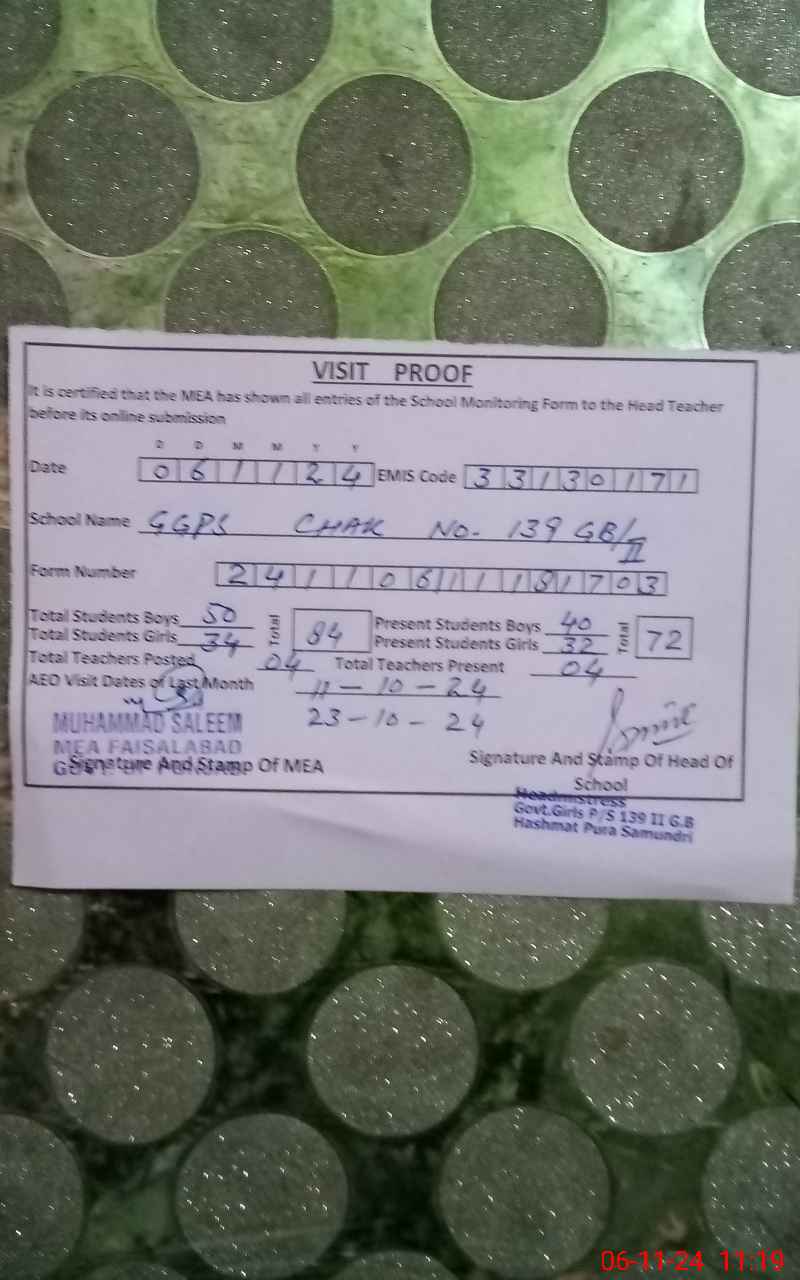 VISIT PROOF
It is certified that the MEA has shown all entries of the School Monitoring Form to the Head Teacher
before its online submission
D D M M Y Y
Date 0 6 1 1 2 4 EMIS Code 3 3 1 3 0 1 7 1
School Name GGPS CHAK NO- 139 GB/II
Form Number 2 4 1 1 0 6 1 1 1 8 1 7 0 3
Total Students Boys 50 Total 84 Present Students Boys 40 Total 72
Total Students Girls 34 Present Students Girls 32
Total Teachers Posted 04 Total Teachers Present 04
AEO Visit Dates of Last Month 11-10-24
23-10-24
MUHAMMAD SALEEM
MEA FAISALABAD
Signature And Stamp Of MEA
Signature And Stamp Of Head Of
School
Headmistress
Govt.Girls P/S 139 II G.B
Hashmat Pura Samundri
06-11-24 11:19